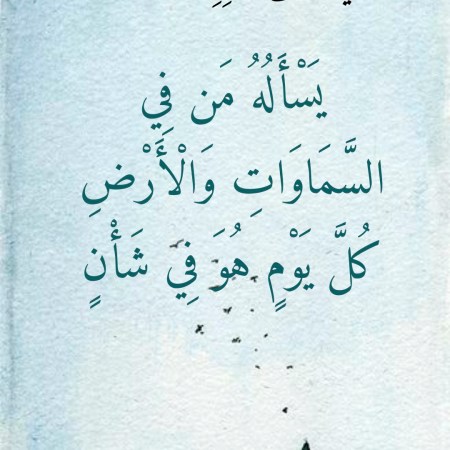 يَسْأَلُهُ مَن فِي
السَّمَاوَاتِ وَالْأَرْضِ
كُلَّ يَوْمٍ هُوَ فِي شَأْنٍ